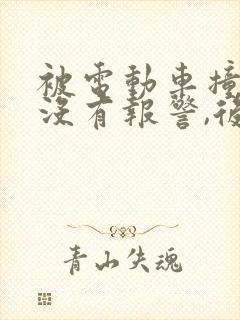 被電動車撞
沒有報警,後
青山失魂